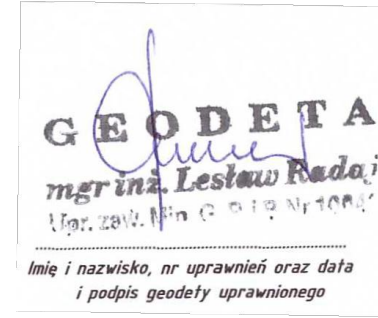 GEODETA
mgr inż. Lesław Radaj
Upr. zaw. Min G. P. i B. Nr
Imię i nazwisko, nr uprawnień oraz data
i podpis geodety uprawnionego